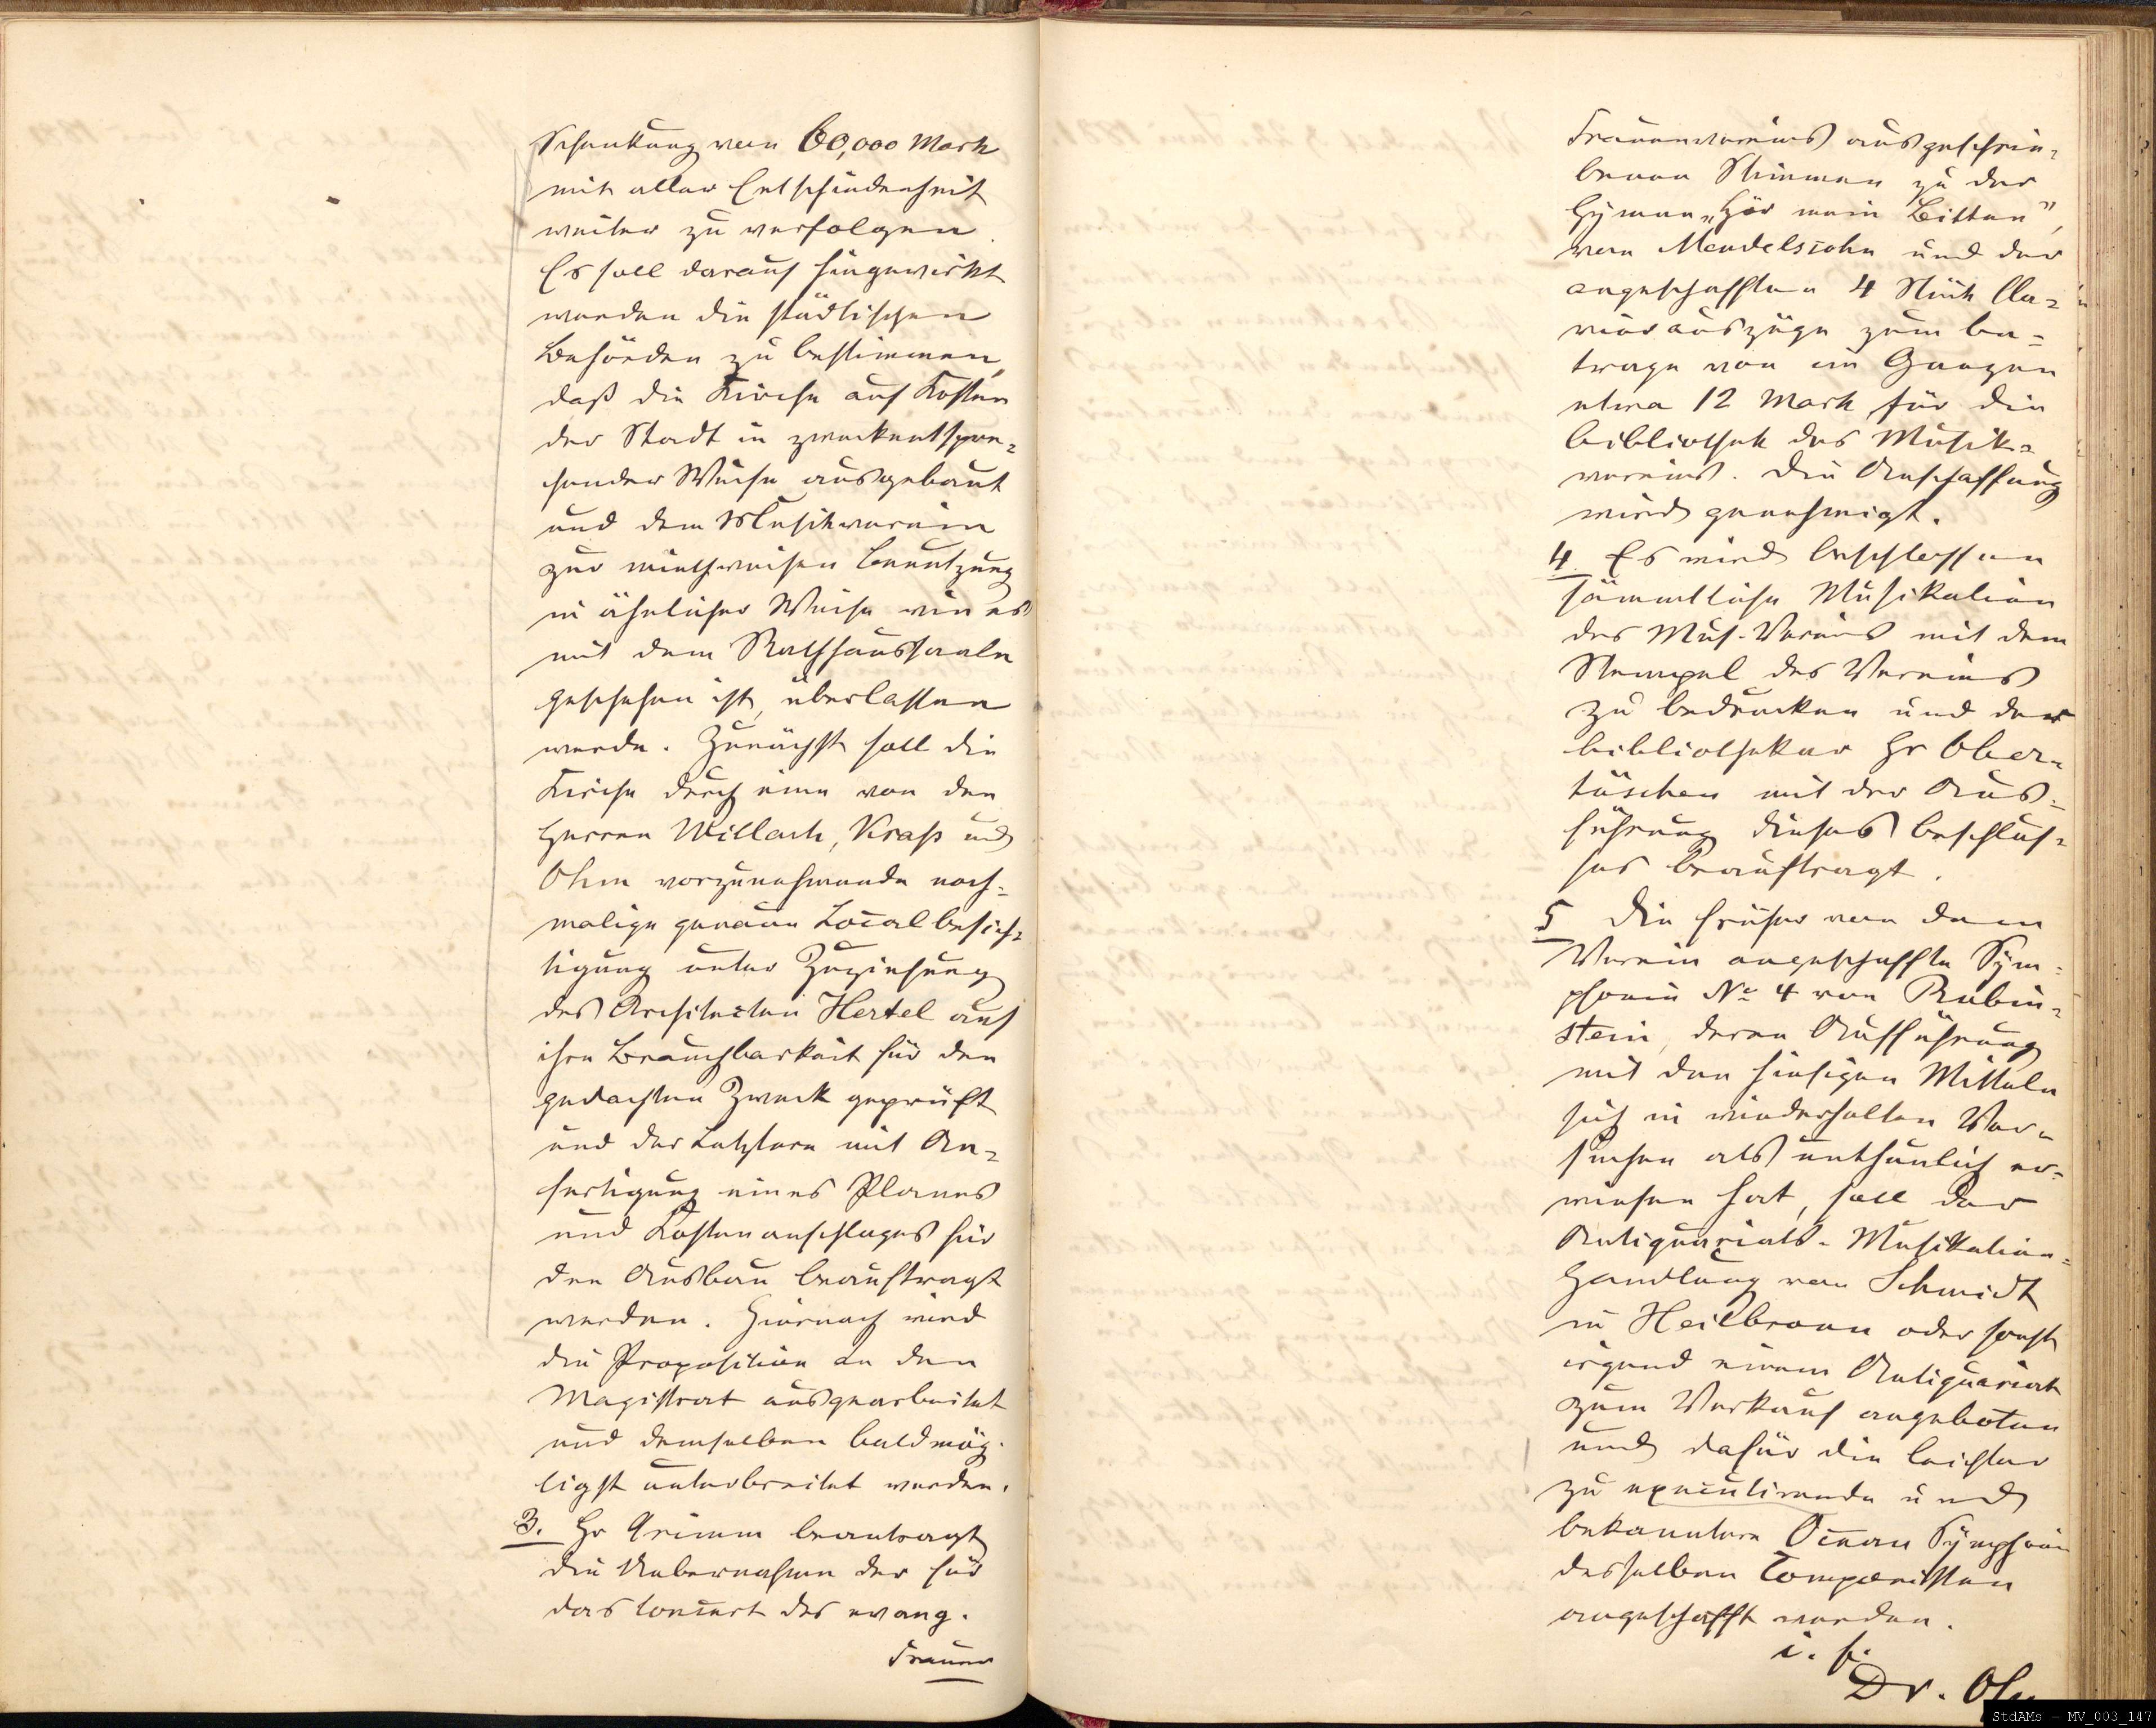 Schenkung von 60,000 Mark
mit aller Entschiedenheit
weiter zu verfolgen.
Es soll darauf hingewirkt
werden die städtischen
Behörden zu bestimmen,
daß die Kirche auf Kosten
der Stadt in zweckentspre-
chender Weise ausgebaut
und dem Musikverein
zur miethweisen Benutzung
in ähnlicher Weise wie es
mit dem Rathhaussaale
geschehen ist, überlassen
werde. Zunächst soll die
Kirche durch eine von den
Herren Willach, Krass und
Ohm vorzunehmende noch-
malige genaue Localbesich-
tigung unter Zuziehung
des Architecten Hertel auf
ihre Brauchbarkeit für den
gedachten Zweck geprüft
und der Letztere mit An-
fertigung eines Planes
und Kostenanschlages für
den Ausbau beauftragt
werden. Hiernach wird
die Proposition an den
Magistrat ausgearbeitet
und demselben baldmög-
ligst unterbreitet werden.
3. Hr Grimm beantragt
die Uebernahme der für
das Concert des evang.
Frauen
Frauenvereins ausgeschrie-
benen Stimmen zu der
Hymne „Hör mein Bitten",
von Mendelsohn und der
angeschafften 4 Stück Cla-
vierauszüge zum Be-
trage von im Ganzen
etwa 12 Mark für die
Bibliothek des Musik-
vereins. Die Anschaffung
wird genehmigt.
4. Es wird beschlossen
sämmtliche Musikalien
des Mus. Vereins mit dem
Stempel des Vereins
zu bedrucken und der
Bibliothekar Hr Ober-
tüschen mit der Aus-
führung dieses Beschlus-
ses beauftragt.
5 Die früher von dem
Verein angeschaffte Sym-
phonie No 4 von Rubin-
stein, deren Aufführung
mit den hiesigen Mitteln
sich in wiederholten Ver-
suchen als unthunlich er-
wiesen hat, soll der
Antiquariats-Musikalien-
Handlung von Schmidt
in Heilbronn oder sonst
irgend einem Antiquariat
zum Verkauf angeboten
und dafür die leichter
zu executirende und
bekanntere Ocean Symphonie
desselben Componisten
angeschafft werden.
i. f.
Dr. Ohm
StdAMs - MV_003_147